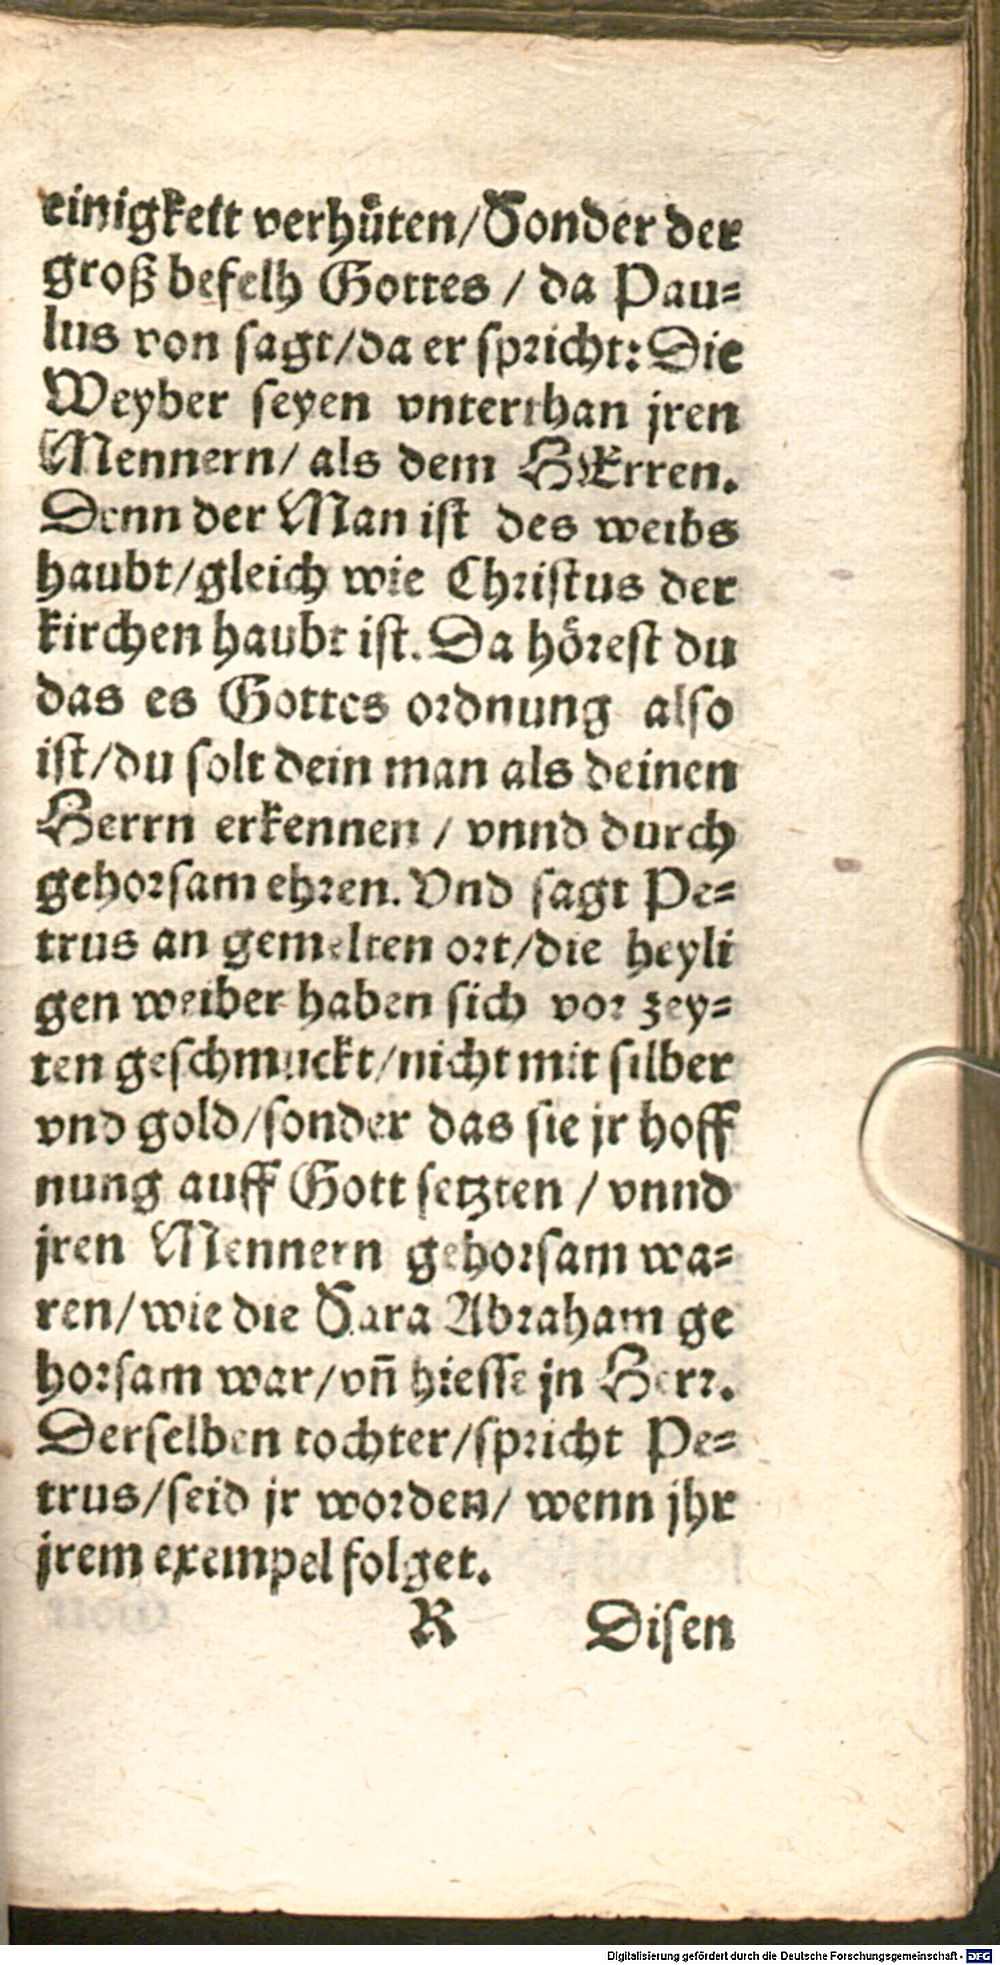 einigkeit verhüten/Sonder der
groß befelh Gottes / da Pau=
lus von sagt/da er spricht: Die
Weyber seyen vnterthan jren
Mennern/ als dem HErren.
Denn der Man ist des weibs
haubt/gleich wie Christus der
kirchen haubt ist. Da hörest du
das es Gottes ordnung also
ist/du solt dein man als deinen
Herrn erkennen / vnnd durch
gehorsam ehren. Vnd sagt Pe=
trus an gemelten ort/die heyli
gen weiber haben sich vor zey=
ten geschmuckt/nicht mit silber
vnd gold/sonder das sie jr hoff
nung auff Gott setzten / vnnd
jren Mennern gehorsam wa=
ren/wie die Sara Abraham ge
horsam war/vñ hiesse jn Herr.
Derselben tochter/spricht Pe=
trus/seid jr worden/ wenn jhr
jrem exempel folget.
R Disen
Digitalisierung gefördert durch die Deutsche Forschungsgemeinschaft - DFG